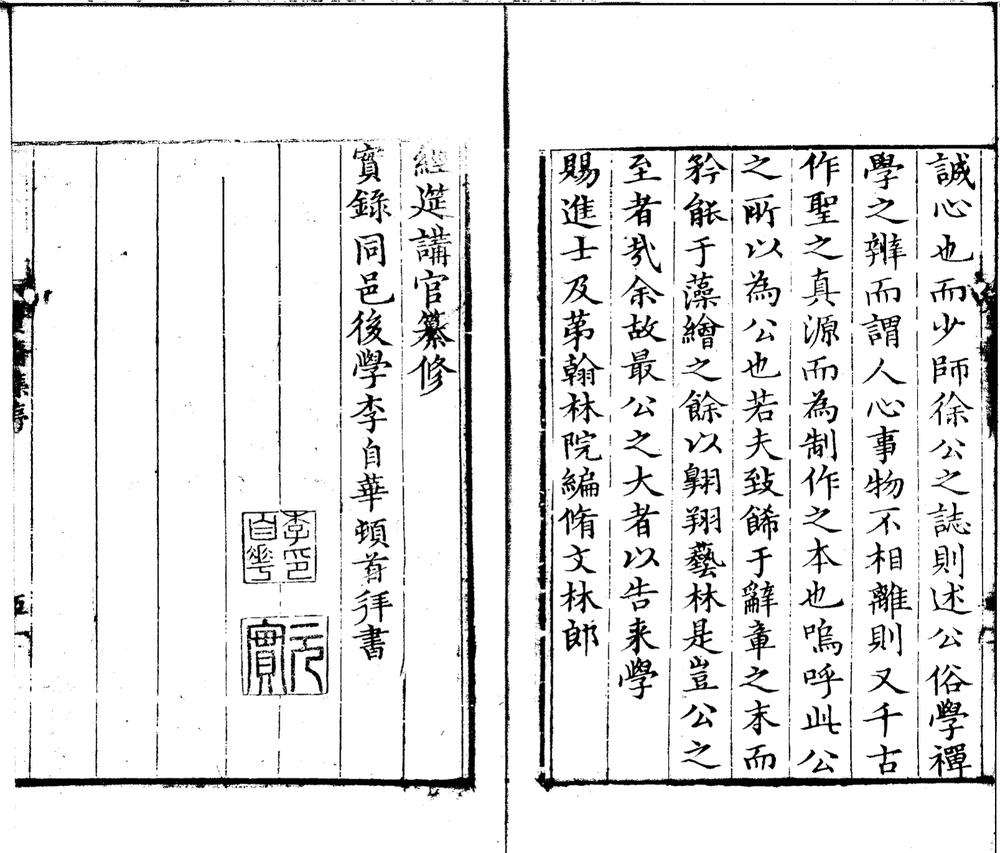 誠心也而少師徐公之誌則述公俗學禪
學之辨而謂人心事物不相離則又千古
作聖之真源而為制作之本也嗚呼此公
之所以為公也若夫致餙于辭章之末而
矜能于藻繪之餘以翱翔藝林是豈公之
至者㢤余故最公之大者以告来學
賜進士及苐翰林院編脩文林郎
經筵講官纂修
實錄同邑後學李自華頓首拜書
李自華印
元實